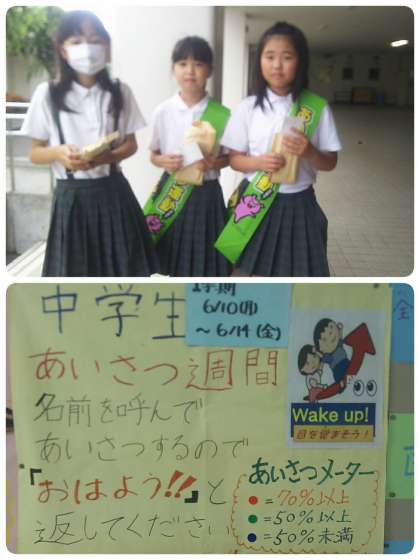 中学生
1学期
6/10(月)
～6/14(金)
あいさつ週間
名前を呼んで
あいさつするので
「おはよう!!」と
返してください
Wake up!
目を覚まそう！
あいさつメーター
● = 70%以上
● = 50%以上
● = 50%未満